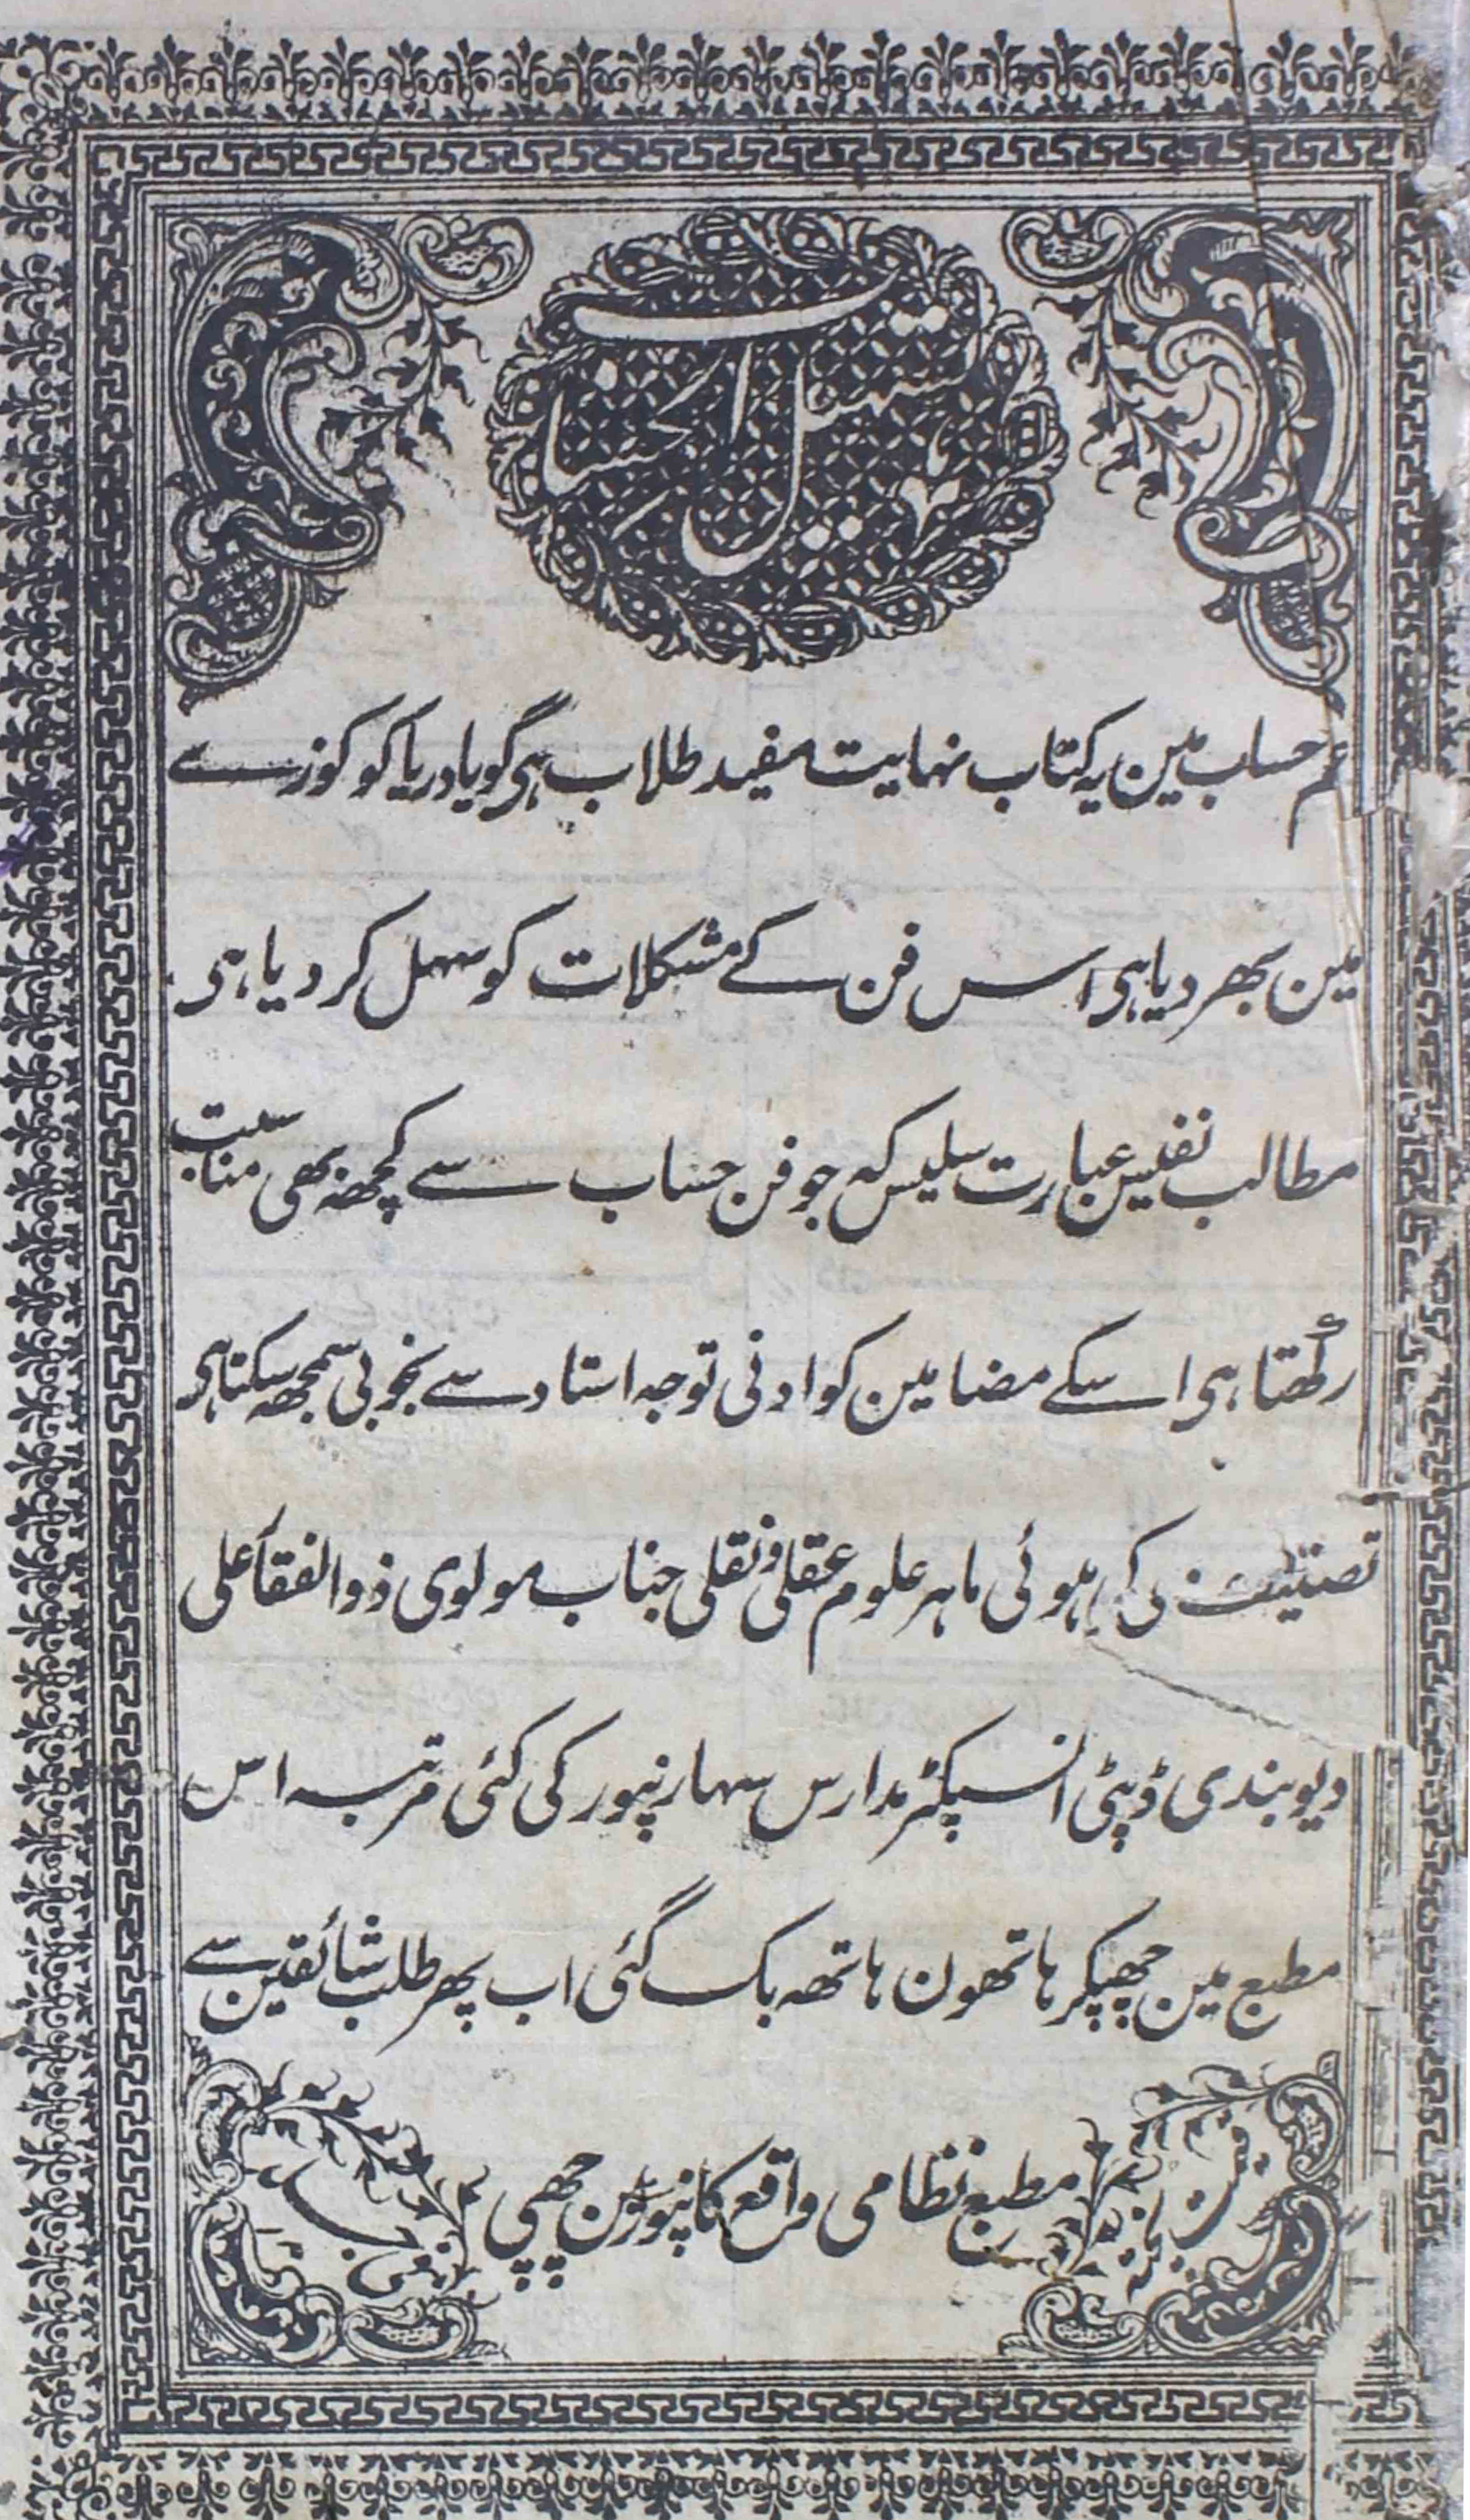 تسہیل الحساب
علم حساب مین یہ کتاب نہایت مفید طلاب ہی گویا دریا کو کوزے
مین بھر دیا ہی اس فن کے مشکلات کو سہل کر دیا ہی
مطالب نفیس عبارت سلیس کہ جو فن حساب سے کچھہ بھی مناسبت
رکھتا ہی اسکے مضامین کو ادنی توجہ استاد سے بخوبی سمجھہ سکتا ہی
تصنیف کی ہوئی ماہر علوم عقلی و نقلی جناب مولوی ذوالفقار علی
دیوبندی ڈپٹی انسپکٹر مدارس سہارنپور کی کئی مرتبہ اس
مطبع مین چھپکر ہاتھون ہاتھہ بک گئی اب پھر طلب شائقین سے
مطبع نظامی واقع کانپور مین چھپی